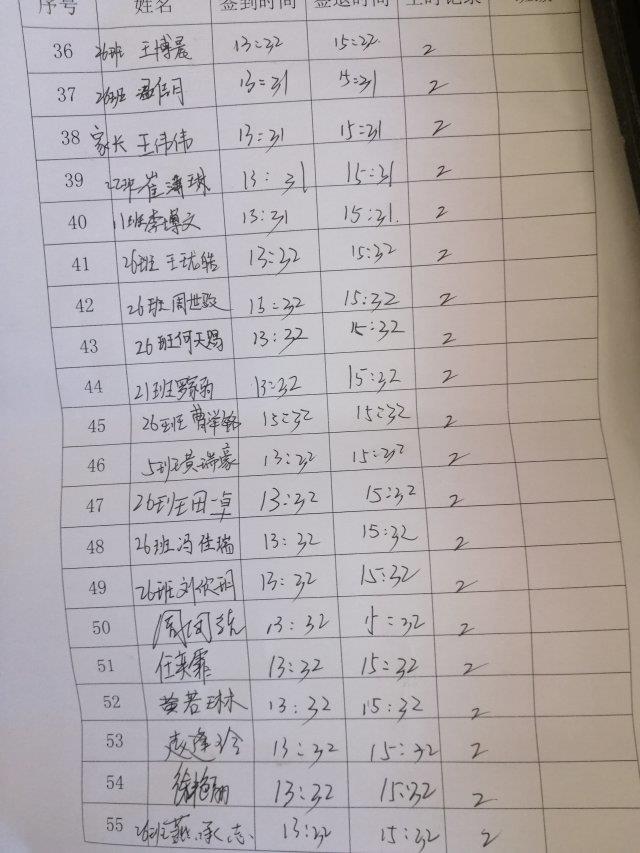 序号 姓名 签到时间 签退时间
36 26班 王博晨 13:32 15:32 2
37 26班 13:31 15:31 2
38 家长 王伟伟 13:31 15:31 2
39 22班崔 琳 13:31 15:31 2
40 11班李博文 13:31 15:31. 2
41 26班 王珑皓 13:32 15:32 2
42 26班周世毅 13:32 15:32 2
43 26班何天赐 13:32 15:32 2
44 21班 13:32 15:32 2
45 26班曹洋铭 15:32 15:32 2
46 5班黄瑞豪 13:32 15:32 2
47 26班王田卓 13:32 15:32 2
48 26班冯佳瑞 13:32 15:32 2
49 26班刘欣玥 13:32 15:32 2
50 周 13:32 15:32 2
51 任奕霏 13:32 15:32 2
52 黄若琳 13:32 15:32 2
53 赵逢玲 13:32 15:32 2
54 徐艳丽 13:32 15:32 2
55 26班 承志 13:32 15:32 2